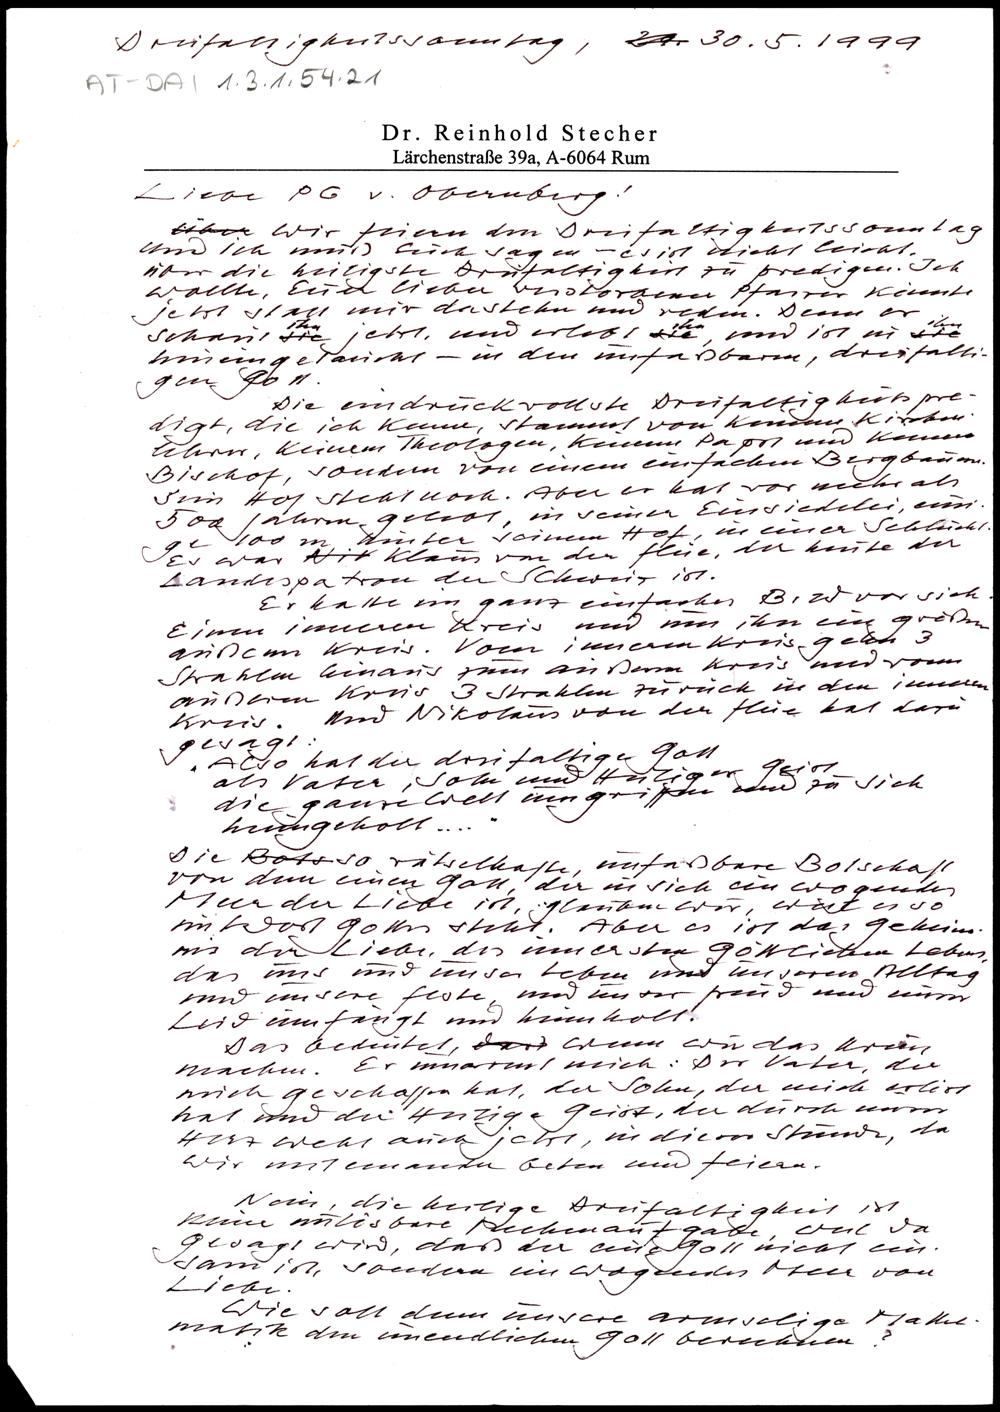 Dreifaltigkeitssonntag, 30.5.1999
AT-DAI 1.3.1.54.21
Dr. Reinhold Stecher
Lärchenstraße 39a, A-6064 Rum
Liebe PG v. Obernberg!
Über Wir feiern den Dreifaltigkeitssonntag
und ich muß Euch sagen - es ist nicht leicht,
über die heiligste Dreifaltigkeit zu predigen. Ich
wollte, Euer lieber verstorbener Pfarrer könnte
jetzt statt mir dastehn und reden. Denn er
schaut sie ihn jetzt, und erlebt sie ihn, und ist in sie ihn
hineingetaucht - in den unfaßbaren, dreifalti-
gen Gott.
Die eindrückvollste Dreifaltigkeitspre-
digt, die ich kenne, stammt von keinem Kirchen-
lehrer, keinem Theologen, keinem Papst und keinem
Bischof, sondern von einem einfachen Bergbauern.
Sein Hof steht noch. Aber er hat vor mehr als
500 Jahren gelebt, in seiner Einsiedelei, eini-
ge 100 m hinter seinem Hof, in einer Schlucht.
Es war Nik Klaus von der Flüe, der heute der
Landespatron der Schweiz ist.
Er hatte ein ganz einfaches Bild vor sich.
Einen inneren Kreis und um ihn ein größerer
äußerer Kreis. Vom inneren Kreis gehn 3
Strahlen hinaus zum äußern Kreis und vom
äußeren Kreis 3 Strahlen zurück in den inneren
Kreis. Und Nikolaus von der Flüe hat dazu
gesagt:
"Also hat der dreifaltige Gott
als Vater, Sohn und Heiliger Geist
die ganze Welt umgriffen und zu sich
heimgeholt...."
Die Bots so rätselhafte, unfaßbare Botschaft
von dem einen Gott, der in sich ein wogendes
Meer der Liebe ist, glauben wir, weil es so
im Wort Gottes steht. Aber es ist das Geheim-
nis der Liebe, des innersten göttlichen Lebens,
das uns und unser Leben und unseren Alltag
und unsere Feste, und unser Freud und unser
Leid umfängt und heimholt.
Das bedeutet, dass wenn wir das Kreuz
machen. Er umarmt mich: Der Vater, der
mich geschaffen hat, der Sohn, der mich erlöst
hat und der Heilige Geist, der durch unser
Herz weht auch jetzt, in dieser Stunde, da
wir miteinander beten und feiern.
Nein, die heilige Dreifaltigkeit ist
keine unlösbare Rechenaufgabe, weil da
gesagt wird, daß der eine Gott nicht ein-
sam ist, sondern ein wogendes Meer von
Liebe.
Wie soll denn unsere armselige Mathe-
matik den unendlichen Gott berechnen?